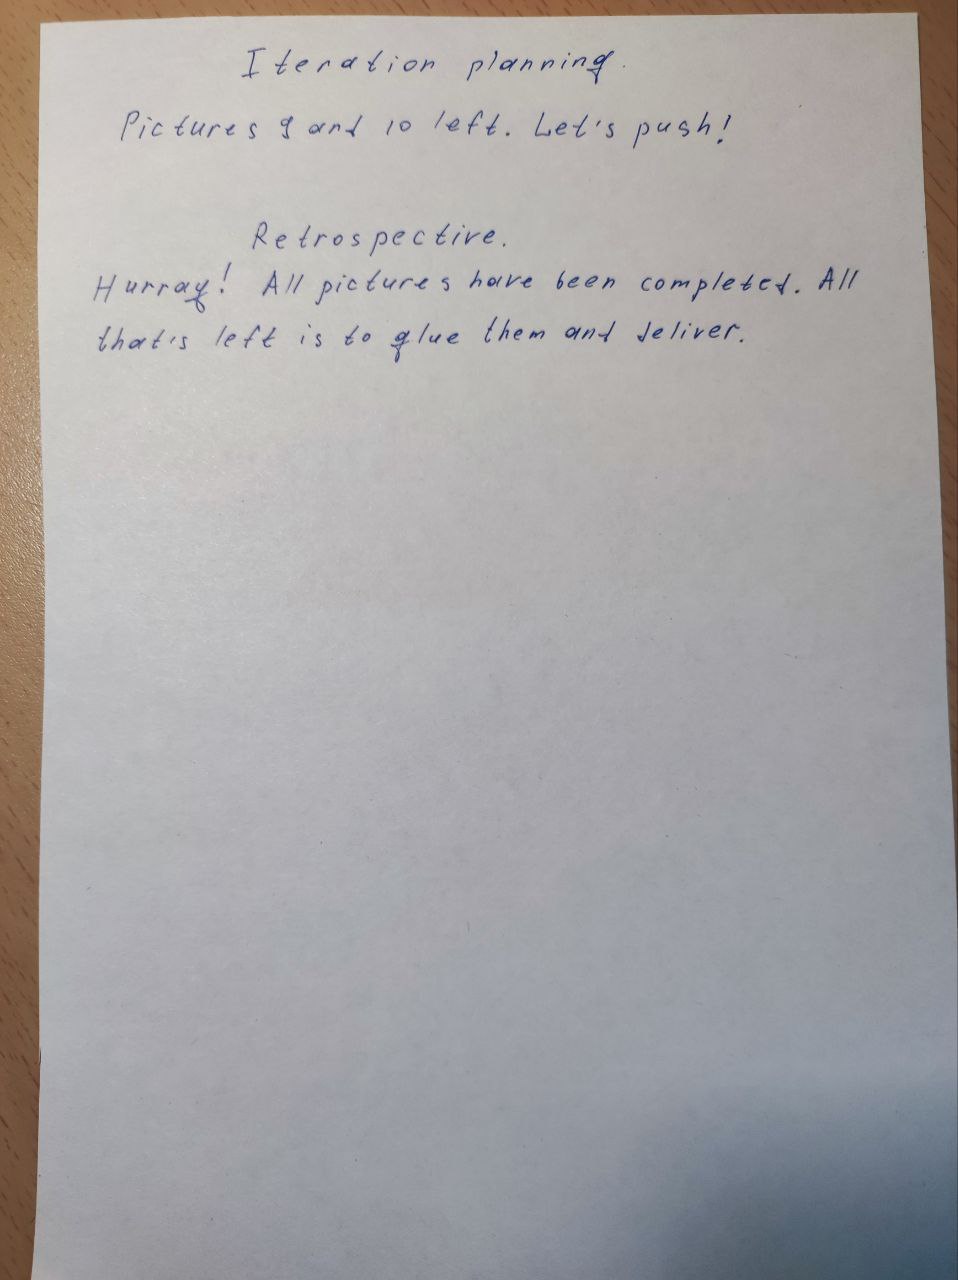 Iteration planning.
Pictures 9 and 10 left. Let's push!
Retrospective.
Hurray! All pictures have been completed. All
that's left is to glue them and deliver.